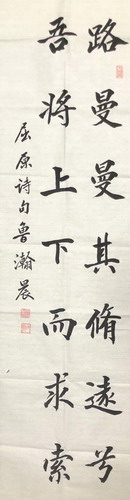 路曼曼其脩遠兮
吾將上下而求索
屈原诗句鲁瀚晨